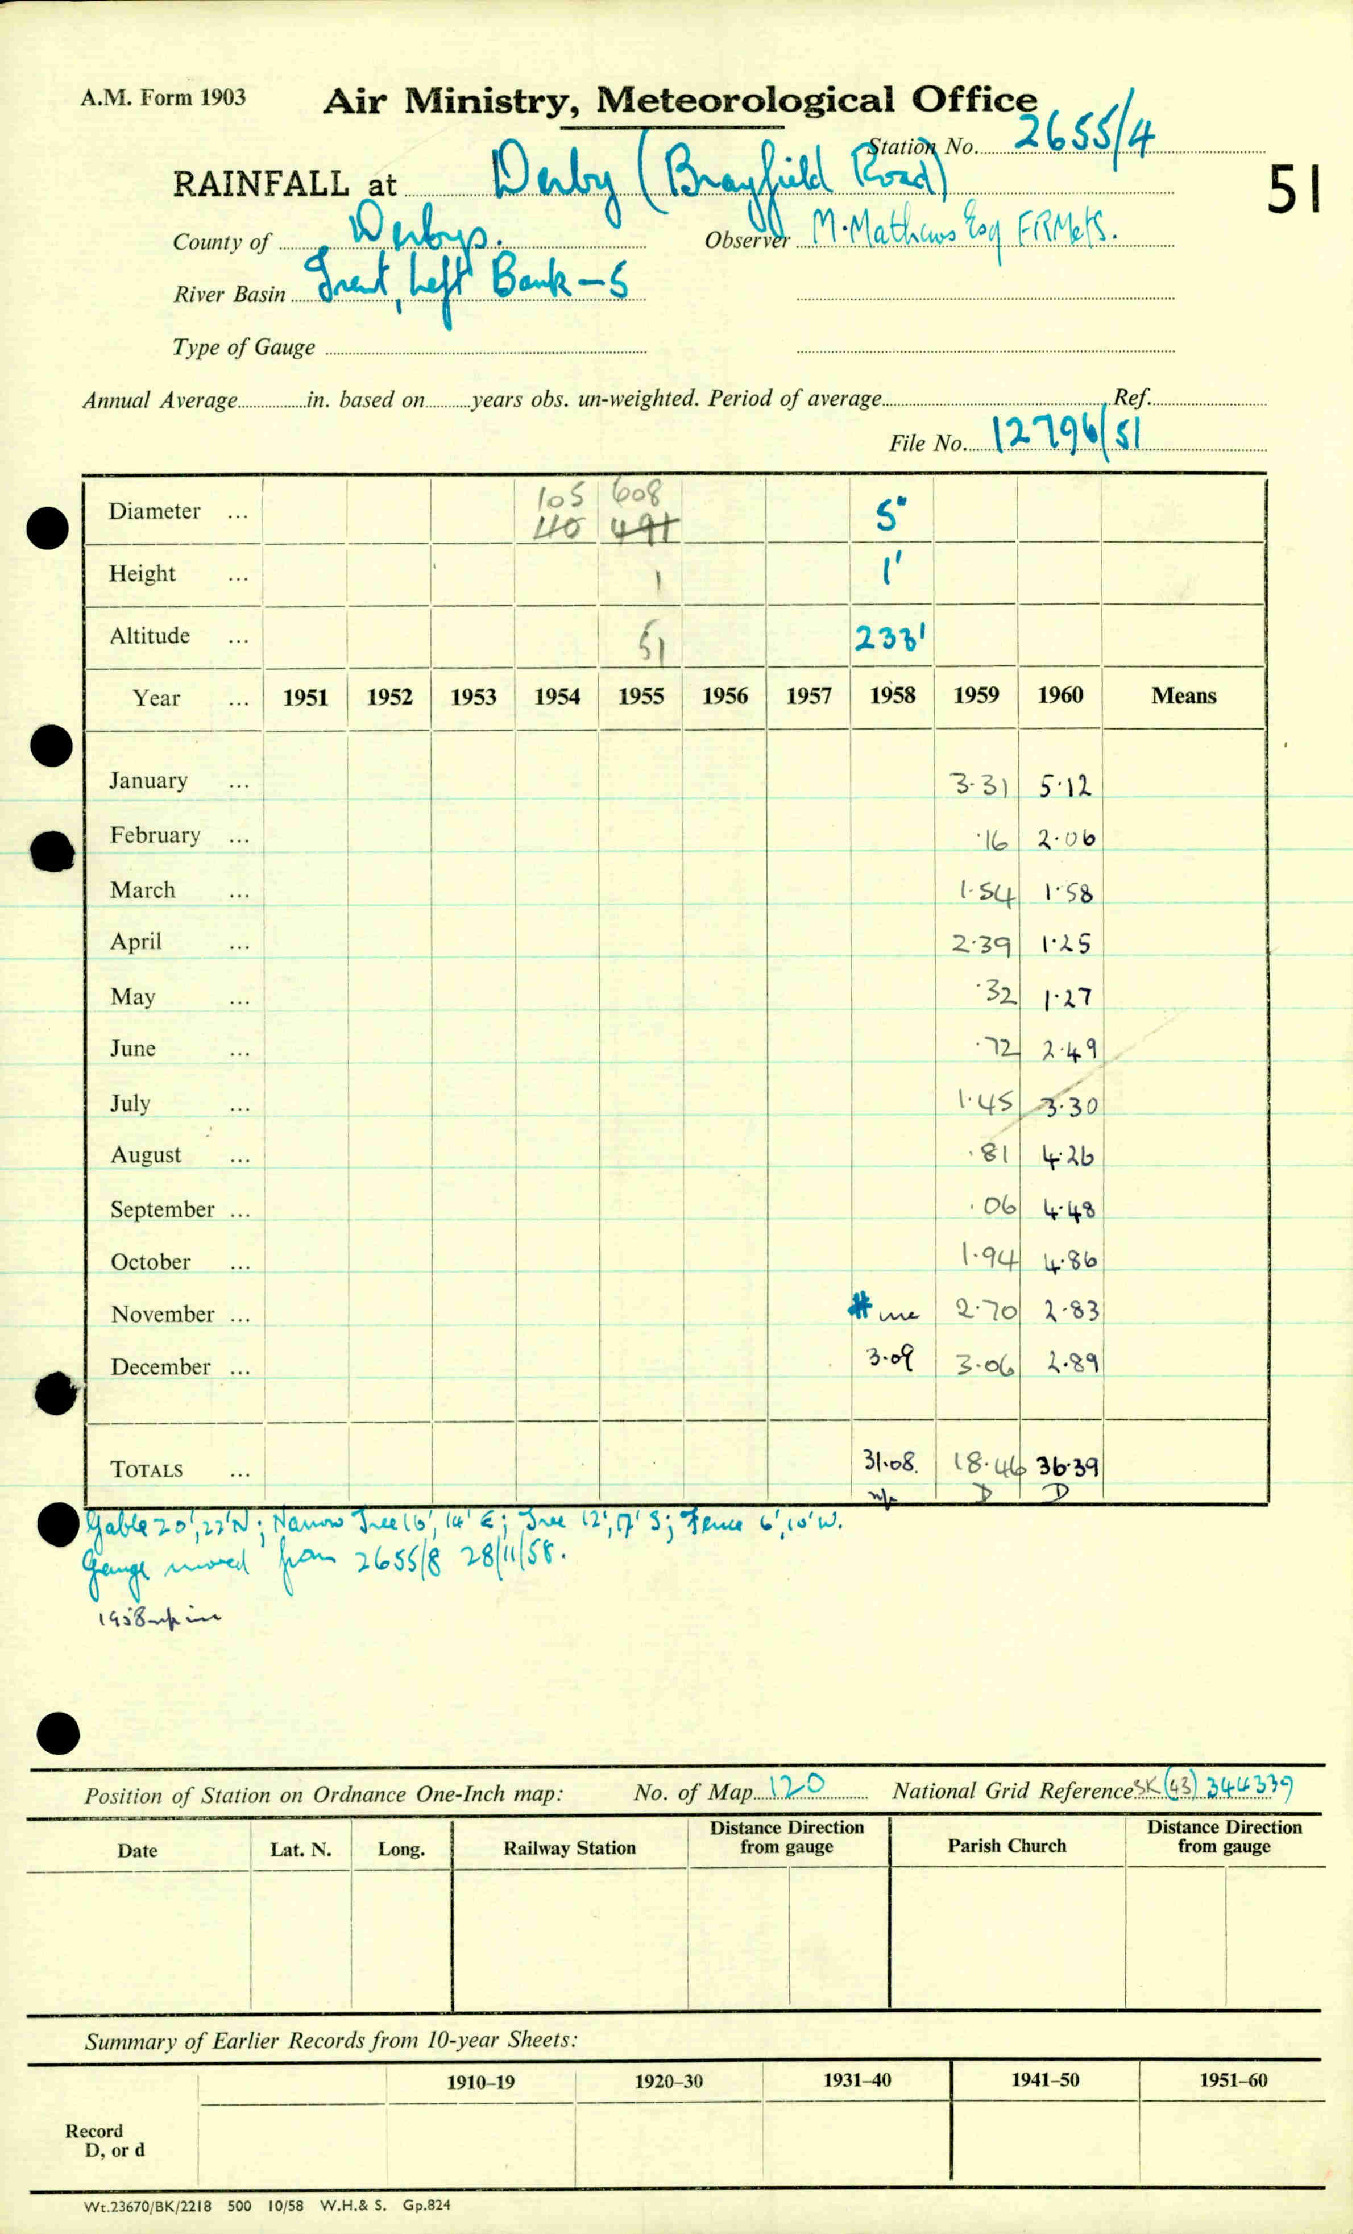 A.M. Form 1903
Air Ministry, Meteorological Office
Station No. 2655/4
RAINFALL at Derby (Brayfield Road)
51
County of Derbys.
Observer M. Mathews Esq FRMetS.
River Basin Trent, Left Bank - 5
Type of Gauge
Annual Average in. based on years obs. un-weighted. Period of average Ref.
File No. 12796/51
Diameter ... 105 608 5"
110 491
Height ... 1 1'
Altitude ... 51 233'
Year ... 1951 1952 1953 1954 1955 1956 1957 1958 1959 1960 Means
January ... 3.31 5.12
February ... .16 2.06
March ... 1.54 1.58
April ... 2.39 1.25
May ... .32 1.27
June ... .72 2.49
July ... 1.45 3.30
August ... .81 4.26
September ... .06 4.48
October ... 1.94 4.86
November ... # 2.70 2.83
December ... 3.09 3.06 2.89
TOTALS ... 31.08. 18.46 36.39
D D
Gable 20', 22' N; Narrow Tree 16', 14' E; Tree 12', 17' S; Fence 6', 10' W.
Gauge moved from 2655/8 28/11/58.
1958
Position of Station on Ordnance One-Inch map: No. of Map 120 National Grid Reference SK (43) 344339
Date Lat. N. Long. Railway Station Distance Direction from gauge Parish Church Distance Direction from gauge
Summary of Earlier Records from 10-year Sheets:
1910–19 1920–30 1931–40 1941–50 1951–60
Record
D, or d
Wt.23670/BK/2218 500 10/58 W.H.& S. Gp.824